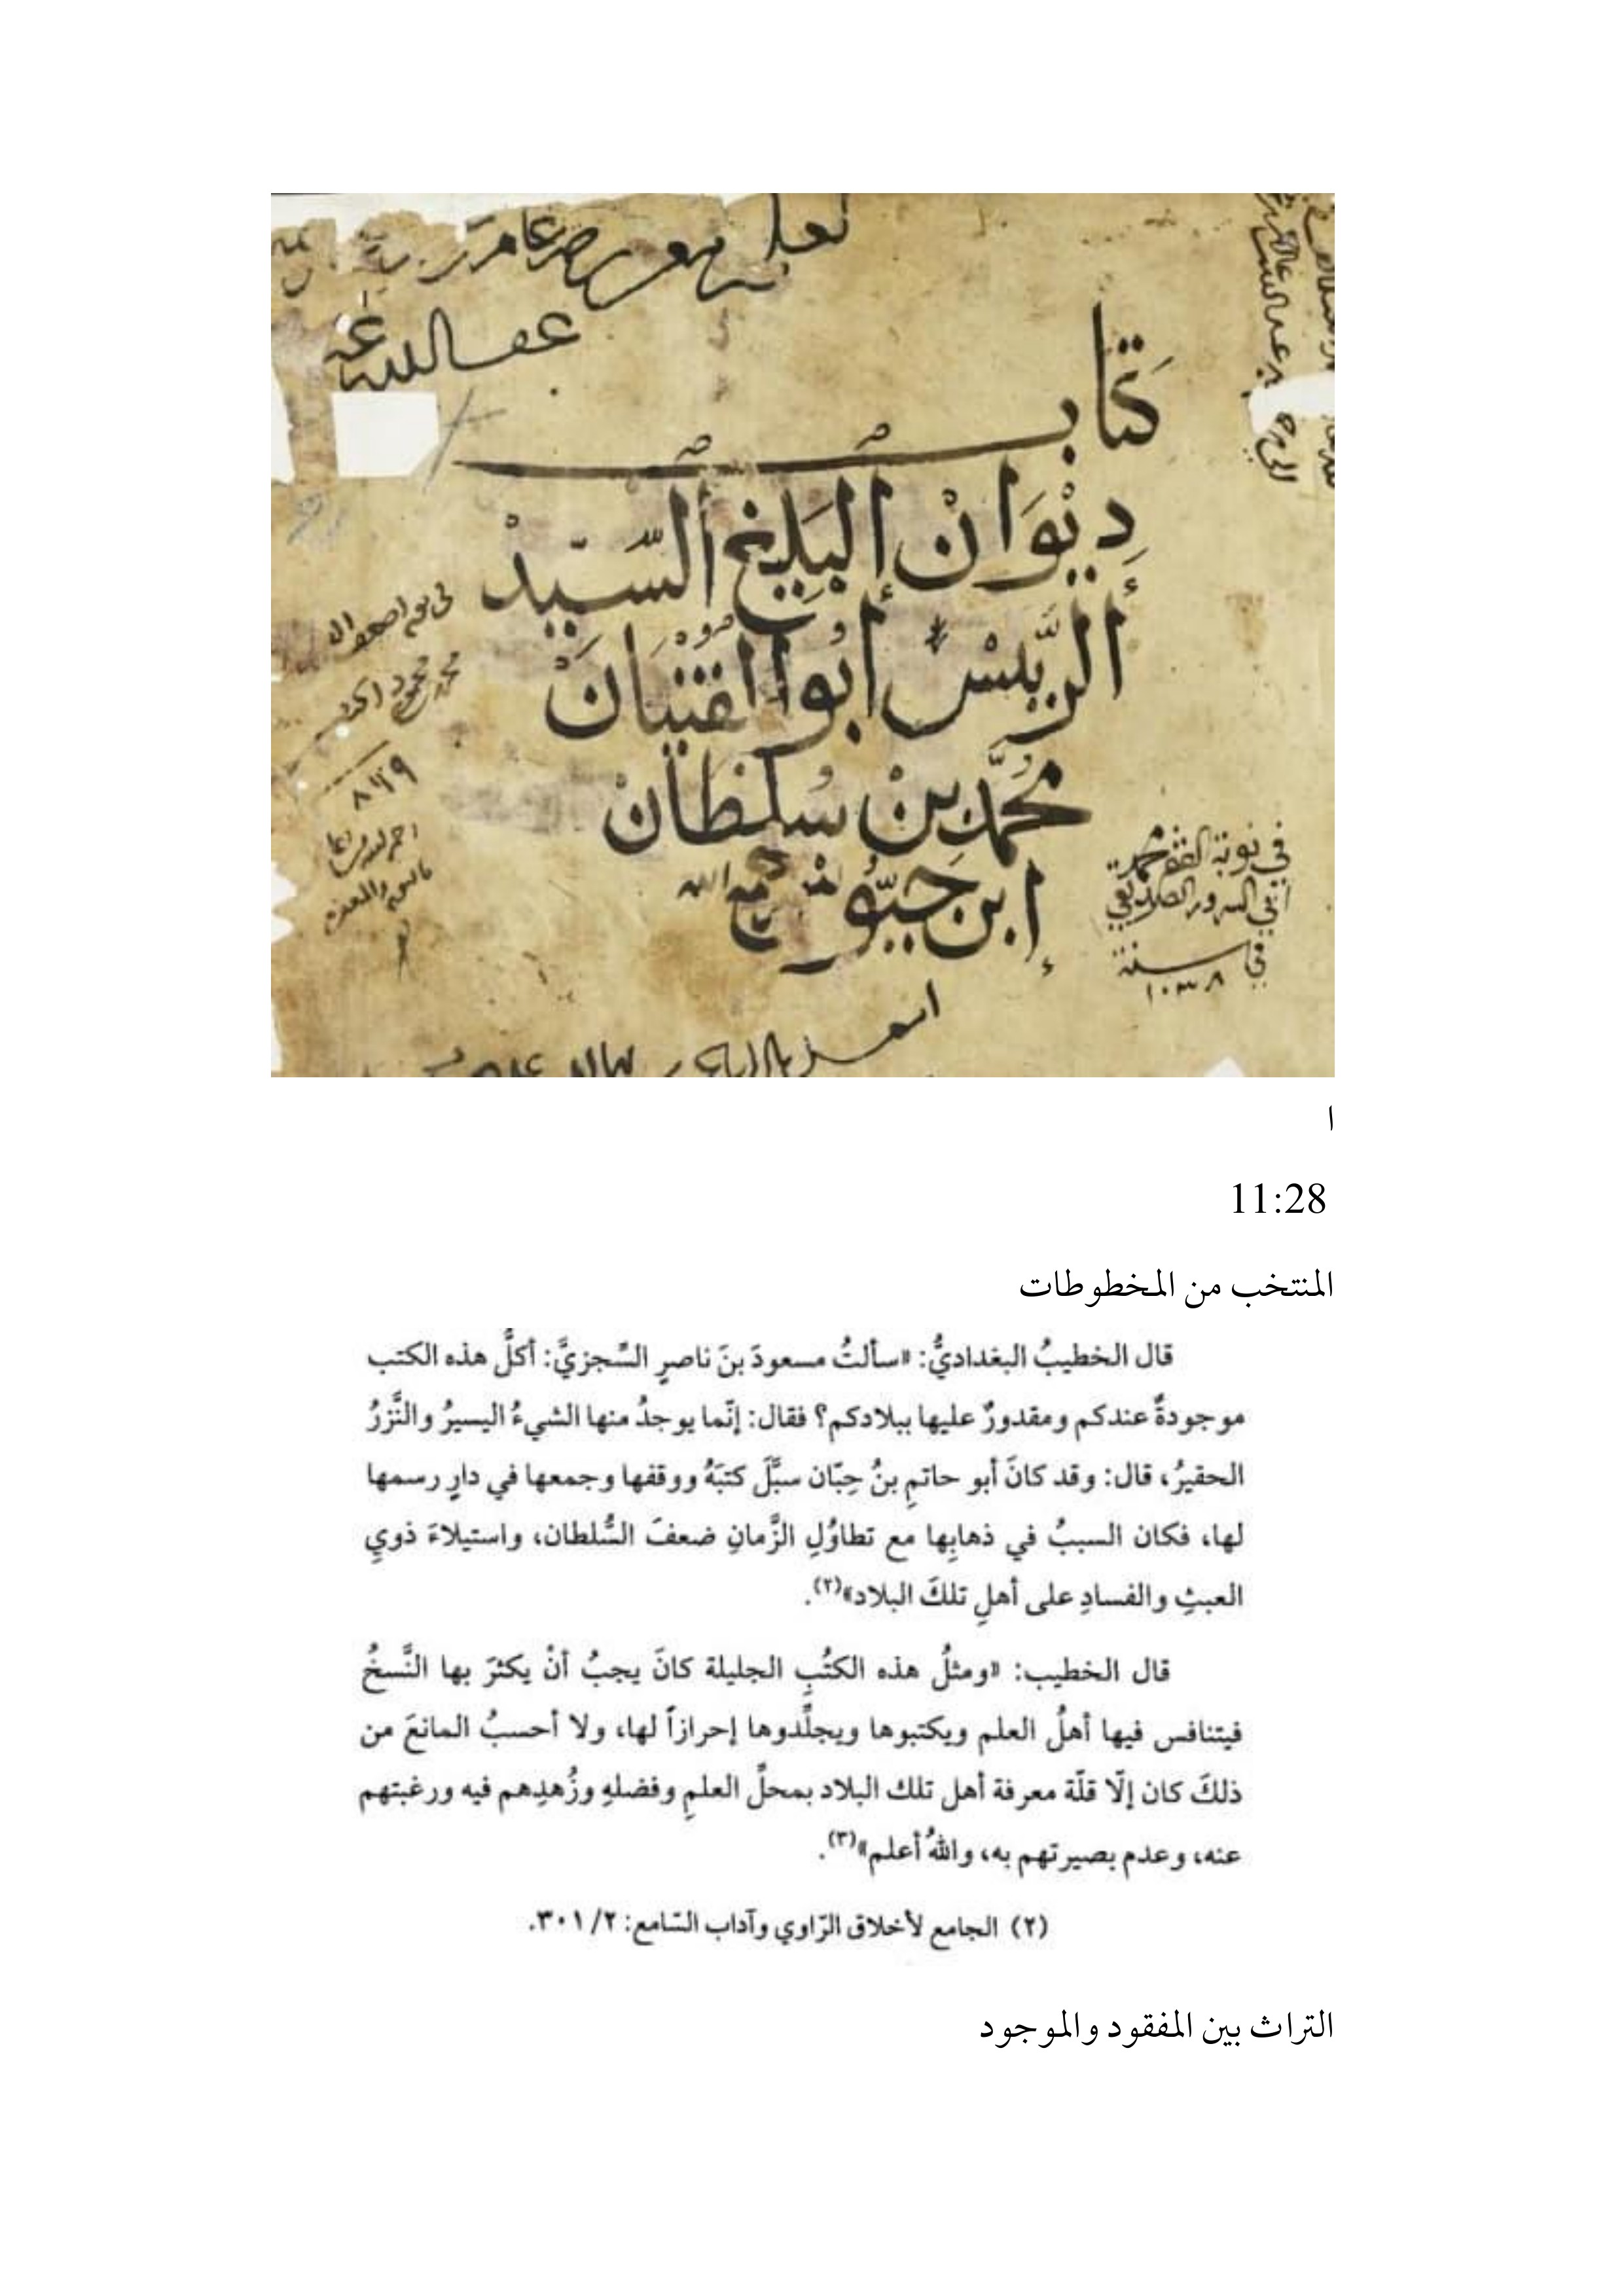 عفا الله عنه
كتاب
دِيْوَانْ إلبَلِيغ ألسَّيّدْ
ألريِّسْ أبُوا الفتْيَانْ
محُمَّد بنْ سُلْطَانْ
إبن حَيُّوسْ
الله
في نوبة الفقير محمد
أبي السرور الصديقي
في سنة
١٠٣٨
محمد محمود
٨٦٩
ا
11:28
المنتخب من المخطوطات
قال الخطيبُ البغداديُّ: «سألتُ مسعودَ بنَ ناصرٍ السِّجزيَّ: أكلُّ هذه الكتب
موجودةٌ عندكم ومقدورٌ عليها ببلادكم؟ فقال: إنّما يوجدُ منها الشيءُ اليسيرُ والنَّزرُ
الحقيرُ، قال: وقد كانَ أبو حاتمِ بنُ حِبّان سبَّلَ كتبَهُ ووقفها وجمعها في دارٍ رسمها
لها، فكان السببُ في ذهابِها مع تطاوُلِ الزَّمانِ ضعفَ السُّلطان، واستيلاءَ ذويِ
العبثِ والفسادِ على أهلِ تلكَ البلاد»(٢).
قال الخطيب: «ومثلُ هذه الكتُبِ الجليلة كانَ يجبُ أنْ يكثرَ بها النَّسخُ
فيتنافس فيها أهلُ العلم ويكتبوها ويجلِّدوها إحرازاً لها، ولا أحسبُ المانعَ من
ذلكَ كان إلّا قلّة معرفة أهل تلك البلاد بمحلِّ العلمِ وفضلهِ وزُهدِهم فيه ورغبتهم
عنه، وعدم بصيرتهم به، واللهُ أعلم»(٣).
(٢) الجامع لأخلاق الرّاوي وآداب السّامع: ٢/ ٣٠١.
التراث بين المفقود والموجود